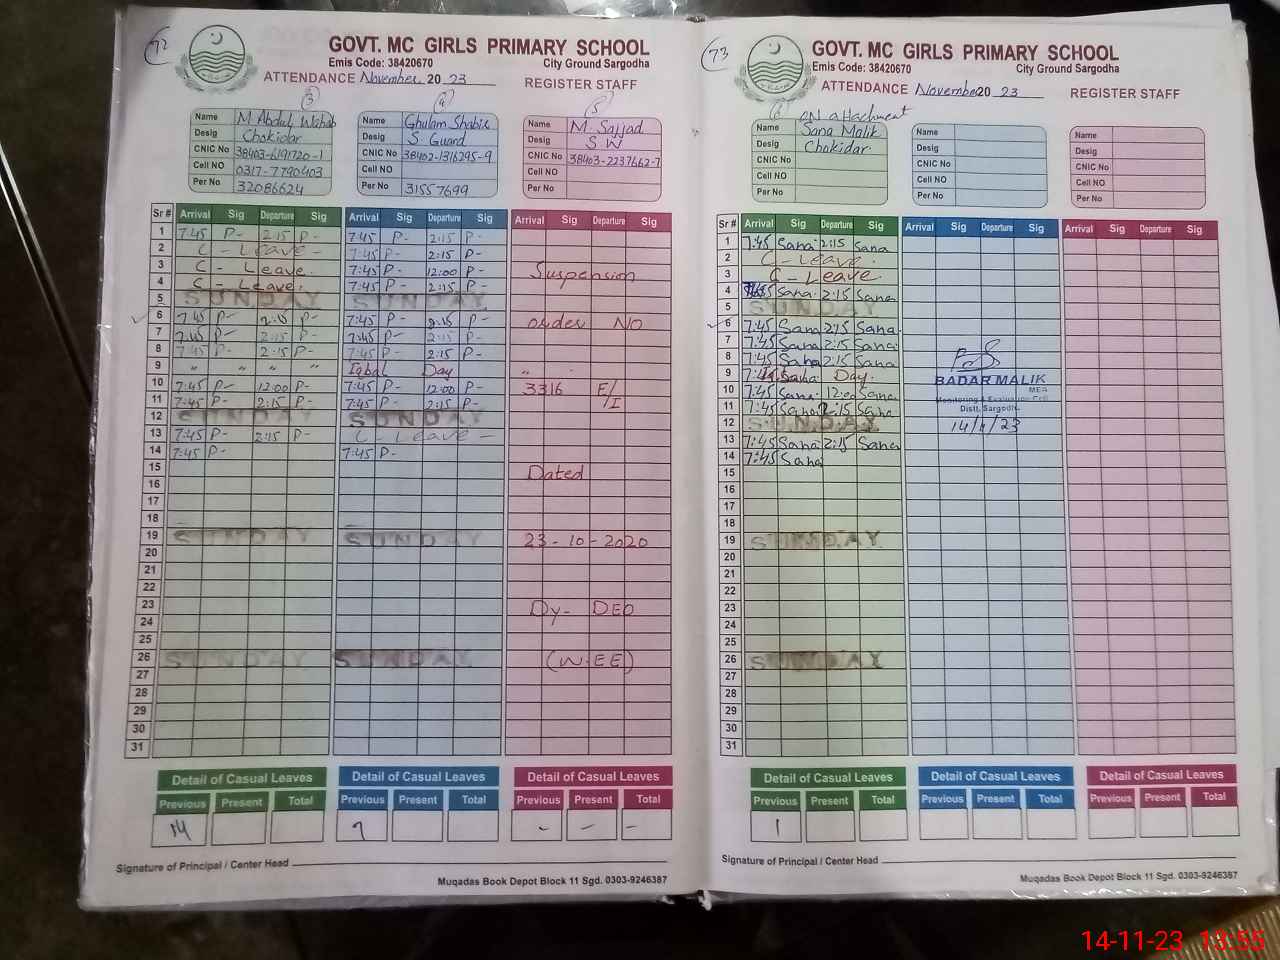 72
GOVT. MC GIRLS PRIMARY SCHOOL
Emis Code: 38420670 City Ground Sargodha
ATTENDANCE November 2023 REGISTER STAFF
3 4 5
Name M Abdul Wahab
Desig Chokidar
CNIC No 38403-6191720-1
Cell NO 0317-7790403
Per No 32086624
Name Ghulam Shabir
Desig S. Guard
CNIC No 38402-1316295-9
Cell NO
Per No 31557699
Name M. Sajjad
Desig S W
CNIC No 38403-2237662-7
Cell NO
Per No
Sr # Arrival Sig Departure Sig Arrival Sig Departure Sig Arrival Sig Departure Sig
1 7:45 P- 2:15 P- 7:45 P- 2:15 P-
2 C - Leave - 7:45 P- 2:15 P-
3 C - Leave. 7:45 P- 12:00 P- Suspension
4 C - Leave. 7:45 P- 2:15 P-
5 SUNDAY SUNDAY
6 7:45 P- 2:15 P- 7:45 P- 2:15 P- order NO
7 7:45 P- 2:15 P- 7:45 P- 2:15 P-
8 7:45 P- 2:15 P- 7:45 P- 2:15 P-
9 " " " " Iqbal Day "
10 7:45 P- 12:00 P- 7:45 P- 12:00 P- 3316 E/I
11 7:45 P- 2:15 P- 7:45 P- 2:15 P-
12 SUNDAY SUNDAY
13 7:45 P- 2:15 P- C - Leave -
14 7:45 P- 7:45 P-
15 Dated
16
17
18
19 SUNDAY SUNDAY 23-10-2020
20
21
22
23 Dy- DEO
24
25
26 SUNDAY SUNDAY (W-EE)
27
28
29
30
31
Detail of Casual Leaves Detail of Casual Leaves Detail of Casual Leaves
Previous Present Total Previous Present Total Previous Present Total
14 7 - - -
Signature of Principal / Center Head
Muqadas Book Depot Block 11 Sgd. 0303-9246387
73
GOVT. MC GIRLS PRIMARY SCHOOL
Emis Code: 38420670 City Ground Sargodha
ATTENDANCE November 2023 REGISTER STAFF
6 oN attachment
Name Sana Malik
Desig Chokidar
CNIC No
Cell NO
Per No
Name
Desig
CNIC No
Cell NO
Per No
Name
Desig
CNIC No
Cell NO
Per No
Sr # Arrival Sig Departure Sig Arrival Sig Departure Sig Arrival Sig Departure Sig
1 7:45 Sana 2:15 Sana
2 C - Leave.
3 C - Leave.
4 7:45 Sana 2:15 Sana
5 SUNDAY
6 7:45 Sana 2:15 Sana
7 7:45 Sana 2:15 Sana
8 7:45 Sana 2:15 Sana
9 Day.
10 7:45 Sana 12:00 Sana
11 7:45 Sana 2:15 Sana
12 SUNDAY
13 7:45 Sana 2:15 Sana
14 7:45 Sana
BADAR MALIK
MEA
Monitoring & Evaluation Cell
Distt. Sargodha
14/11/23
15
16
17
18
19 SUNDAY
20
21
22
23
24
25
26 SUNDAY
27
28
29
30
31
Detail of Casual Leaves Detail of Casual Leaves Detail of Casual Leaves
Previous Present Total Previous Present Total Previous Present Total
1
Signature of Principal / Center Head
Muqadas Book Depot Block 11 Sgd. 0303-9246387
14-11-23 13:55